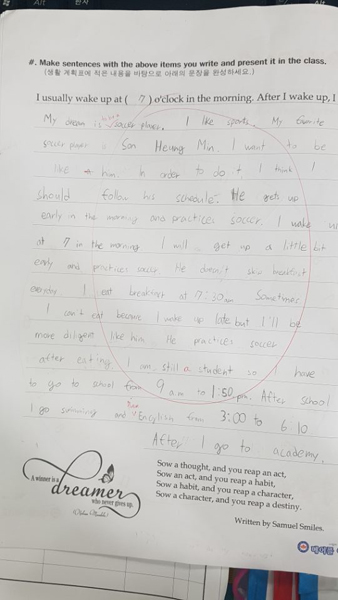 #. Make sentences with the above items you write and present it in the class.
(생활 계획표에 적은 내용을 바탕으로 아래의 문장을 완성하세요.)
I usually wake up at ( 7 ) o'clock in the morning. After I wake up, I
My dream is soccer player. I like sports. My favorite
soccer player is Son Heung Min. I want to be
like him. In order to do it I think I
should follow his schedule. He gets up
early in the morning and practices soccer. I wake up
at 7 in the morning I will get up a little bit
early and practices soccer. He doesn't skip breakfast
everyday. I eat breakfast at 7:30am Sometimes
I can't eat because I wake up late but I'll be
more diligent like him. He practices soccer
after eating. I am still a student so I have
to go to school from 9 a.m to 1:50 pm. After school
I go swimming and English from 3:00 to 6:10
After I go to academy,
A winner is a
dreamer
who never gives up.
(Nelson Mandela)
Sow a thought, and you reap an act,
Sow an act, and you reap a habit,
Sow a habit, and you reap a character,
Sow a character, and you reap a destiny.
Written by Samuel Smiles.